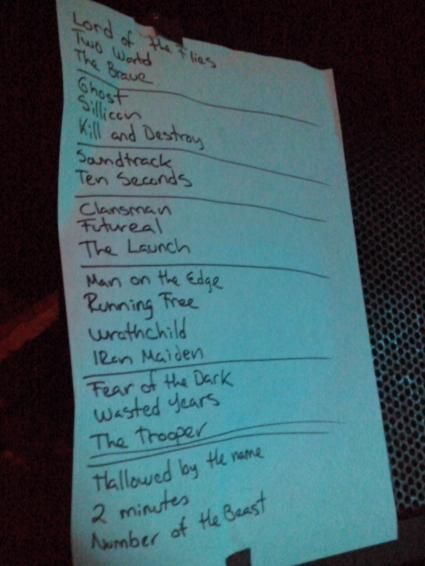 Lord of the Flies
Two World
The Brave
Ghost
Sillicon
Kill and Destroy
Soundtrack
Ten Seconds
Clansman
Futureal
The Launch
Man on the Edge
Running Free
Wrathchild
IRon Maiden
Fear of the Dark
Wasted Years
The Trooper
Hallowed by the name
2 minutes
Number of the Beast